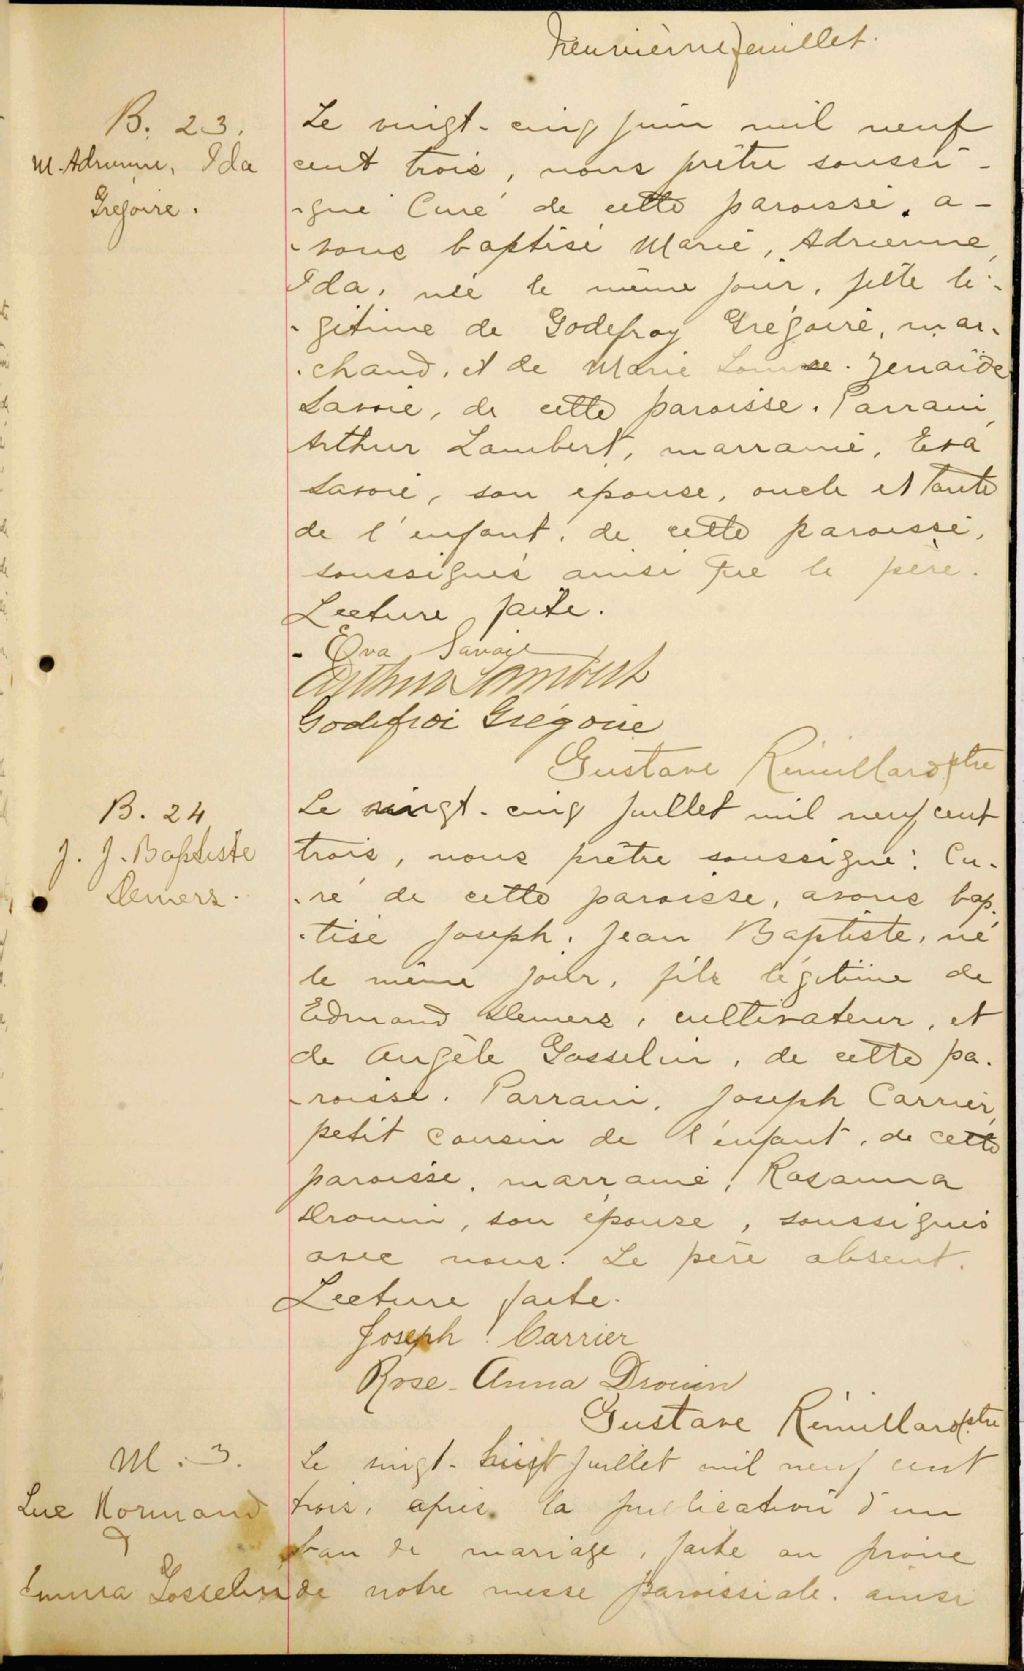 Neuvième feuillet.
B. 23.
M. Adrienne, Ida
Grégoire.
Le vingt-cinq juin mil neuf
cent trois, nous prêtre soussi-
-gné Curé de cette paroisse, a-
-vons baptisé Marie, Adrienne,
Ida, née le même jour, fille lé-
-gitime de Godefroy Grégoire, mar-
-chand, et de Marie Louise Zénaïde
Savoie, de cette paroisse. Parrain,
Arthur Lambert, marraine, Eva
Savoie, son épouse, oncle et tante
de l'enfant, de cette paroisse,
soussignés ainsi que le père.
Lecture faite.
Eva Savoie
Arthur Lambert
Godefroi Grégoire
Gustave Rémillard ptre
B. 24
J. J. Baptiste
Demers.
Le vingt-cinq juillet mil neuf cent
trois, nous prêtre soussigné, Cu-
-ré de cette paroisse, avons bap-
-tisé Joseph, Jean Baptiste, né
le même jour, fils légitime de
Edmond Demers, cultivateur, et
de Angèle Gosselin, de cette pa-
-roisse. Parrain, Joseph Carrier,
petit cousin de l'enfant, de cette
paroisse, marraine, Rosanna
Drouin, son épouse, soussignés
avec nous. Le père absent.
Lecture faite.
Joseph Carrier
Rose-Anna Drouin
Gustave Rémillard ptre
M. 3.
Luc Normand
&
Emma Gosselin
Le vingt-huit juillet mil neuf cent
trois, après la publication d'un
ban de mariage, faite au prône
de notre messe paroissiale, ainsi